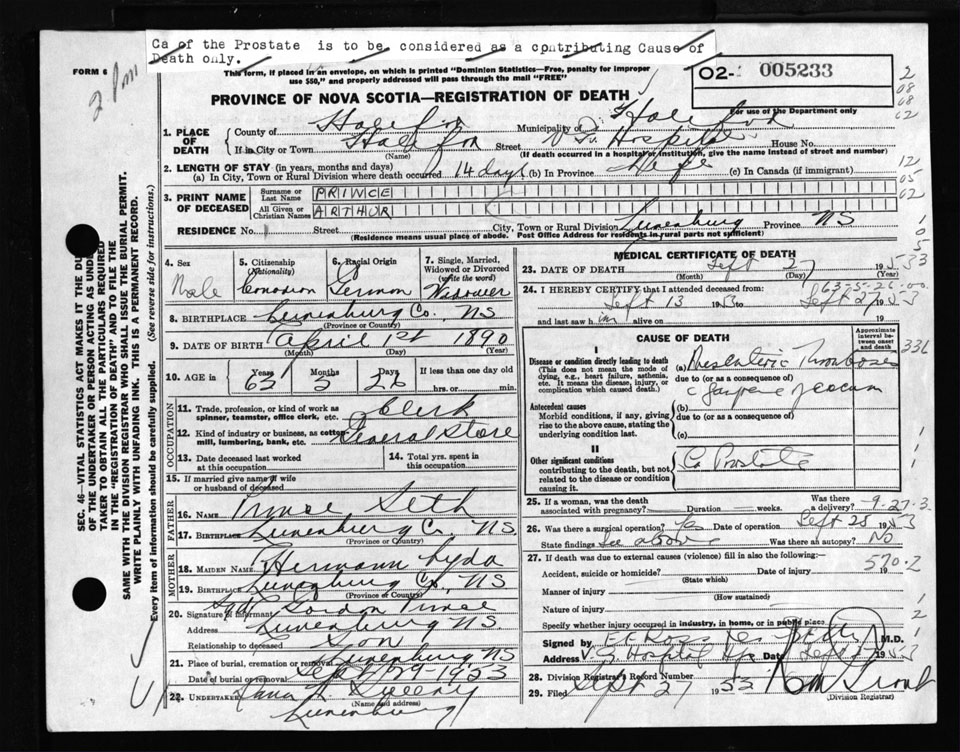 Ca of the Prostate is to be considered as a contributing Cause of
Death only.
FORM 6
2 pm
This form, if placed in an envelope, on which is printed "Dominion Statistics—Free, penalty for improper
use $50," and properly addressed will pass through the mail "FREE"
02- 005233
For use of the Department only
PROVINCE OF NOVA SCOTIA—REGISTRATION OF DEATH
1. PLACE OF DEATH
County of Halifax Municipality of Halifax
If in City or Town Halifax Street V. G. Hospital House No.
(Name) (If death occurred in a hospital or institution, give the name instead of street and number)
2. LENGTH OF STAY (in years, months and days)
(a) In City, Town or Rural Division where death occurred 14 days (b) In Province Life (c) In Canada (if immigrant)
3. PRINT NAME OF DECEASED
Surname or Last Name PRINCE
All Given or Christian Names ARTHUR
RESIDENCE No. Street City, Town or Rural Division Lunenburg Province NS
(Residence means usual place of abode. Post Office Address for residents in rural parts not sufficient)
4. Sex Male
5. Citizenship (Nationality) Canadian
6. Racial Origin German
7. Single, Married, Widowed or Divorced (write the word) Widower
8. BIRTHPLACE Lunenburg Co., NS
(Province or Country)
9. DATE OF BIRTH April 1st 1890
(Month) (Day) (Year)
10. AGE in Years Months Days If less than one day
63 5 26 hrs. or min.
OCCUPATION
11. Trade, profession, or kind of work as spinner, teamster, office clerk, etc. Clerk
12. Kind of industry or business, as cotton mill, lumbering, bank, etc. General Store
13. Date deceased last worked at this occupation
14. Total yrs. spent in this occupation
15. If married give name of wife or husband of deceased
FATHER
16. Name Prince Seth
17. Birthplace Lunenburg Co. NS.
(Province or Country)
MOTHER
18. MAIDEN NAME Hermann Lyda
19. BIRTHPLACE Lunenburg Co., NS
(Province or Country)
20. Signature of informant Sgd Gordon Prince
Address Lunenburg NS.
Relationship to deceased Son
21. Place of burial, cremation or removal Lunenburg NS
Date of burial or removal Sept 29-1953
22. UNDERTAKER Sweeny
(Name and address)
Lunenburg
MEDICAL CERTIFICATE OF DEATH
23. DATE OF DEATH Sept 27 1953
(Month) (Day) (Year)
63-5-26-00
24. I HEREBY CERTIFY that I attended deceased from:
Sept 13 1953 to Sept 27 1953
and last saw him alive on 19
CAUSE OF DEATH
Approximate interval between onset and death
I
Disease or condition directly leading to death
(This does not mean the mode of dying, e.g., heart failure, asthenia, etc. It means the disease, injury, or complication which caused death.)
(a) Mesenteric Thrombosis
due to (or as a consequence of)
c gangrene of caecum
Antecedent causes
Morbid conditions, if any, giving rise to the above cause, stating the underlying condition last.
(b)
due to (or as a consequence of)
(c)
II
Other significant conditions
contributing to the death, but not related to the disease or condition causing it.
Ca Prostate
25. If a woman, was the death associated with pregnancy? Duration weeks. Was there a delivery?
26. Was there a surgical operation? Yes Date of operation Sept 25 1953
State findings See above Was there an autopsy? No
27. If death was due to external causes (violence) fill in also the following:—
Accident, suicide or homicide? Date of injury 19
(State which)
570.2
Manner of injury
(How sustained)
Nature of injury
Specify whether injury occurred in industry, in home, or in public place
Signed by E F Ross M.D.
Address V. G. Hospital Hfx Date Sept 27 1953
28. Division Registrar's Record Number
29. Filed Sept 27 1953
(Division Registrar)
SEC. 46—VITAL STATISTICS ACT MAKES IT THE DU
OF THE UNDERTAKER OR PERSON ACTING AS UNDER
TAKER TO OBTAIN ALL THE PARTICULARS REQUIRED
IN THE "REGISTRATION OF DEATH" AND TO FILE THE
SAME WITH THE DIVISION REGISTRAR WHO SHALL ISSUE THE BURIAL PERMIT.
WRITE PLAINLY WITH UNFADING INK. THIS IS A PERMANENT RECORD.
Every item of information should be carefully supplied. (See reverse side for instructions.)